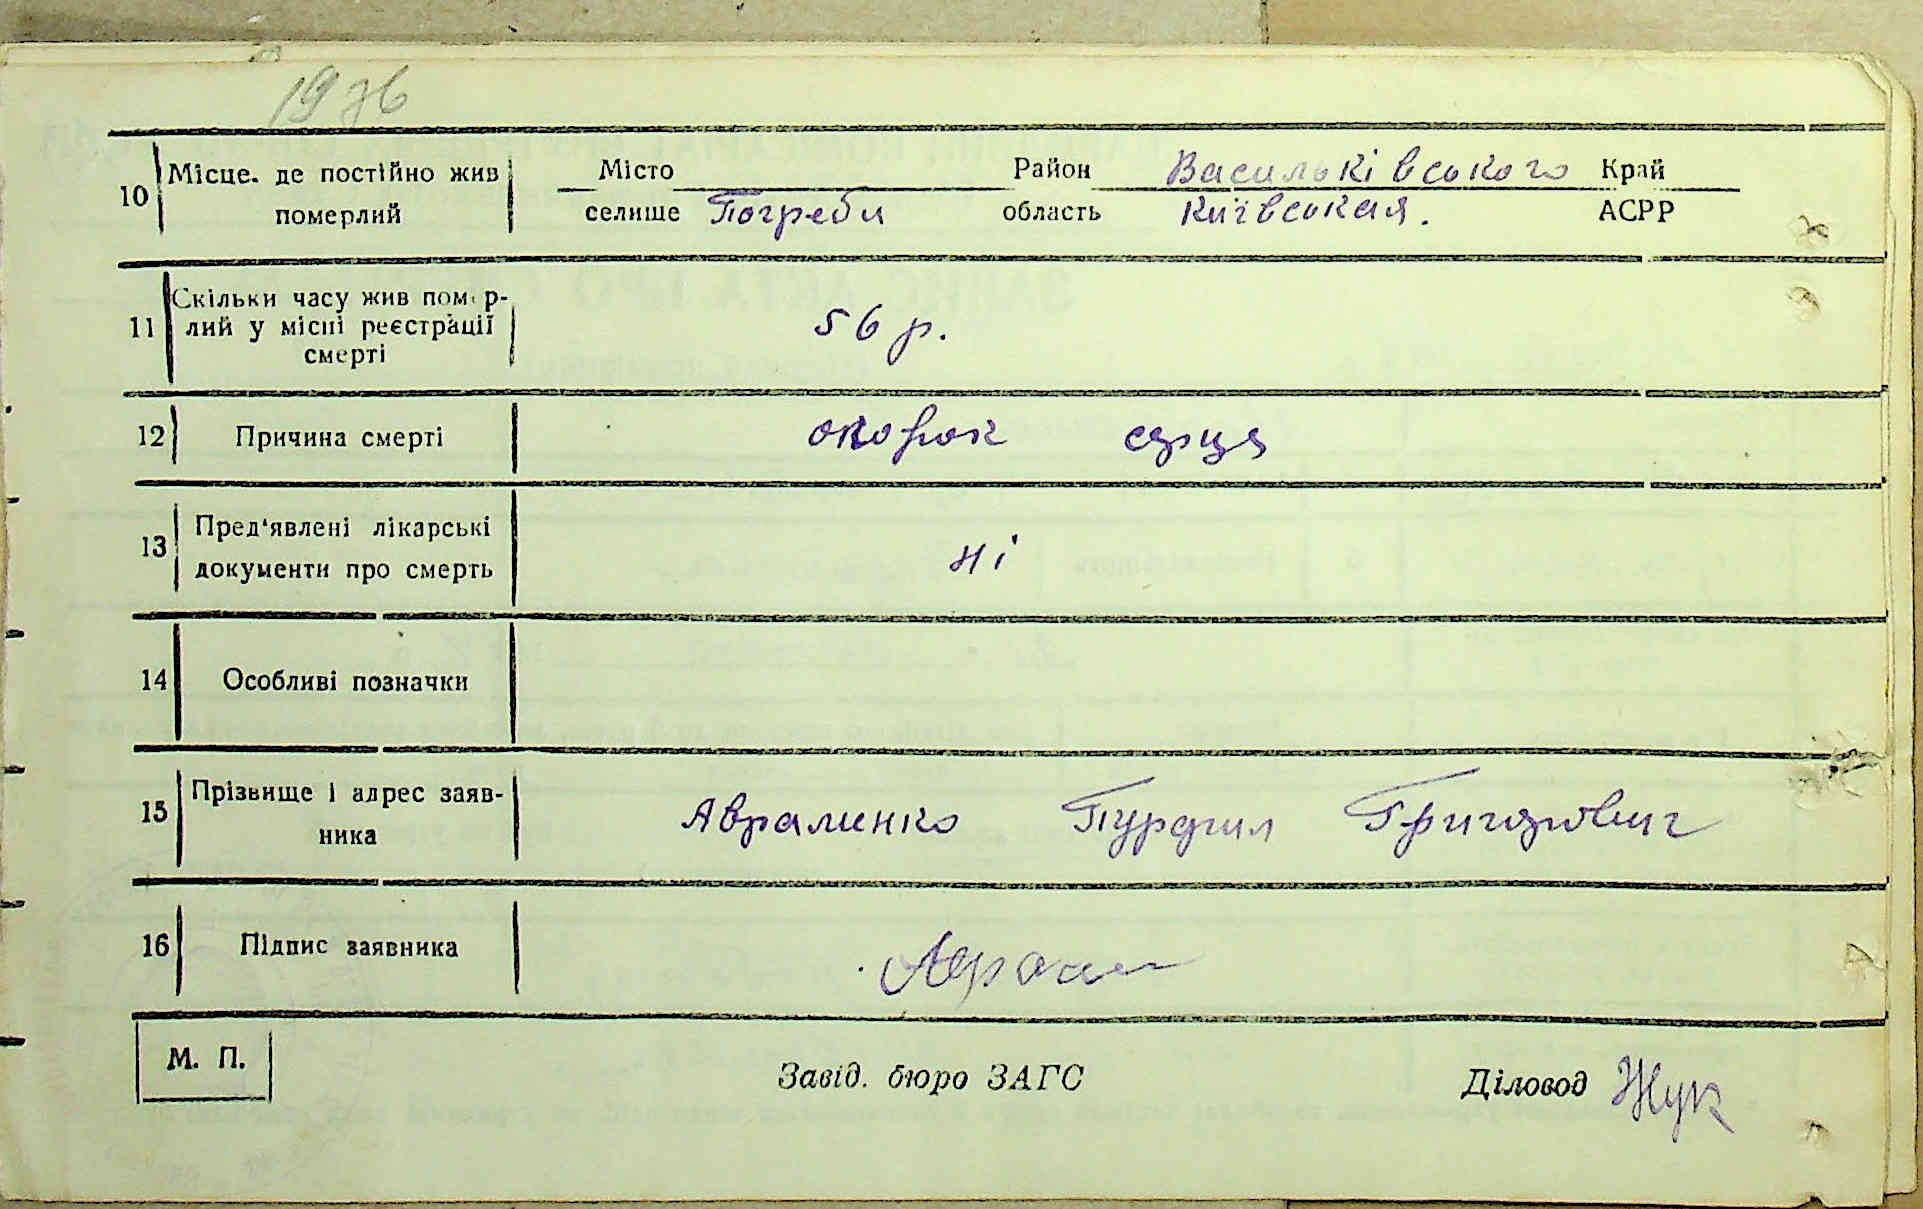 10 Місце. де постійно жив померлий
Місто Район Васильківського Край
селище Погреби область Київська. АСРР
11 Скільки часу жив помер-
лий у місці реєстрації
смерті
56 р.
12 Причина смерті
сердця
13 Пред'явлені лікарські
документи про смерть
ні
14 Особливі позначки
15 Прізвище і адрес заяв-
ника
Авраменко Григорович
16 Підпис заявника
М. П.
Завід. бюро ЗАГС
Діловод Жук